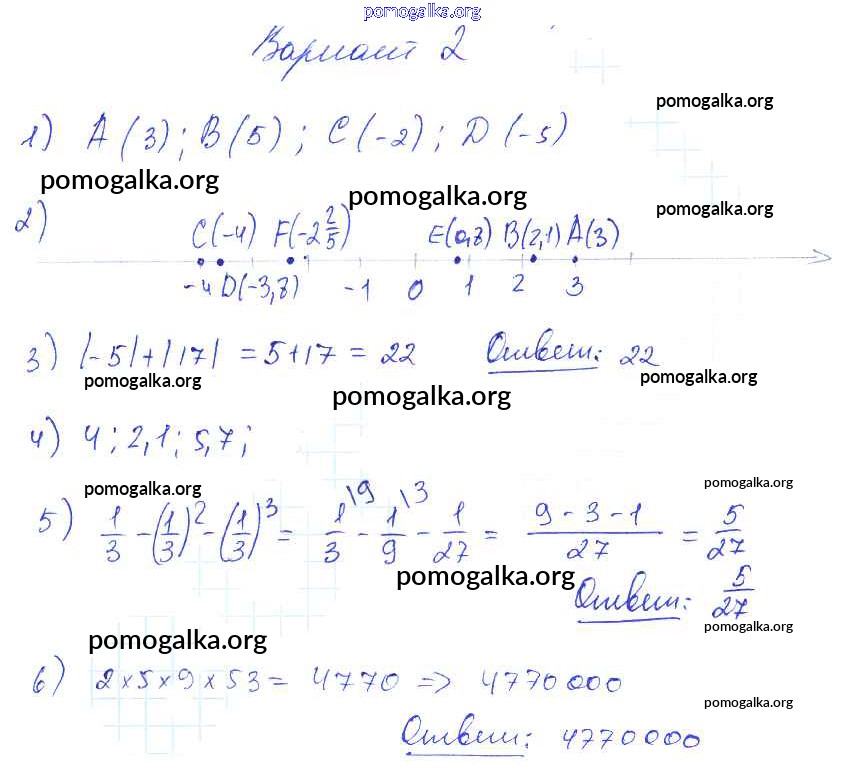 pomogalka.org
Вариант 2
pomogalka.org
1) A (3); B (5); C (-2); D (-5)
pomogalka.org
pomogalka.org
pomogalka.org
2)
C(-4) F(-2 2/5) E(0,8) B(2,1) A(3)
-4 D(-3,8) -1 0 1 2 3
3) |-5|+|17| = 5+17 = 22 Ответ: 22
pomogalka.org
pomogalka.org
pomogalka.org
4) 4; 2,1; 5,7;
pomogalka.org
pomogalka.org
5) 1/3 - (1/3)^2 - (1/3)^3 = 1/3 \9 - 1/9 \3 - 1/27 = (9-3-1)/27 = 5/27
pomogalka.org
Ответ: 5/27
pomogalka.org
pomogalka.org
6) 2×5×9×53 = 4770 => 4770000
pomogalka.org
Ответ: 4770000